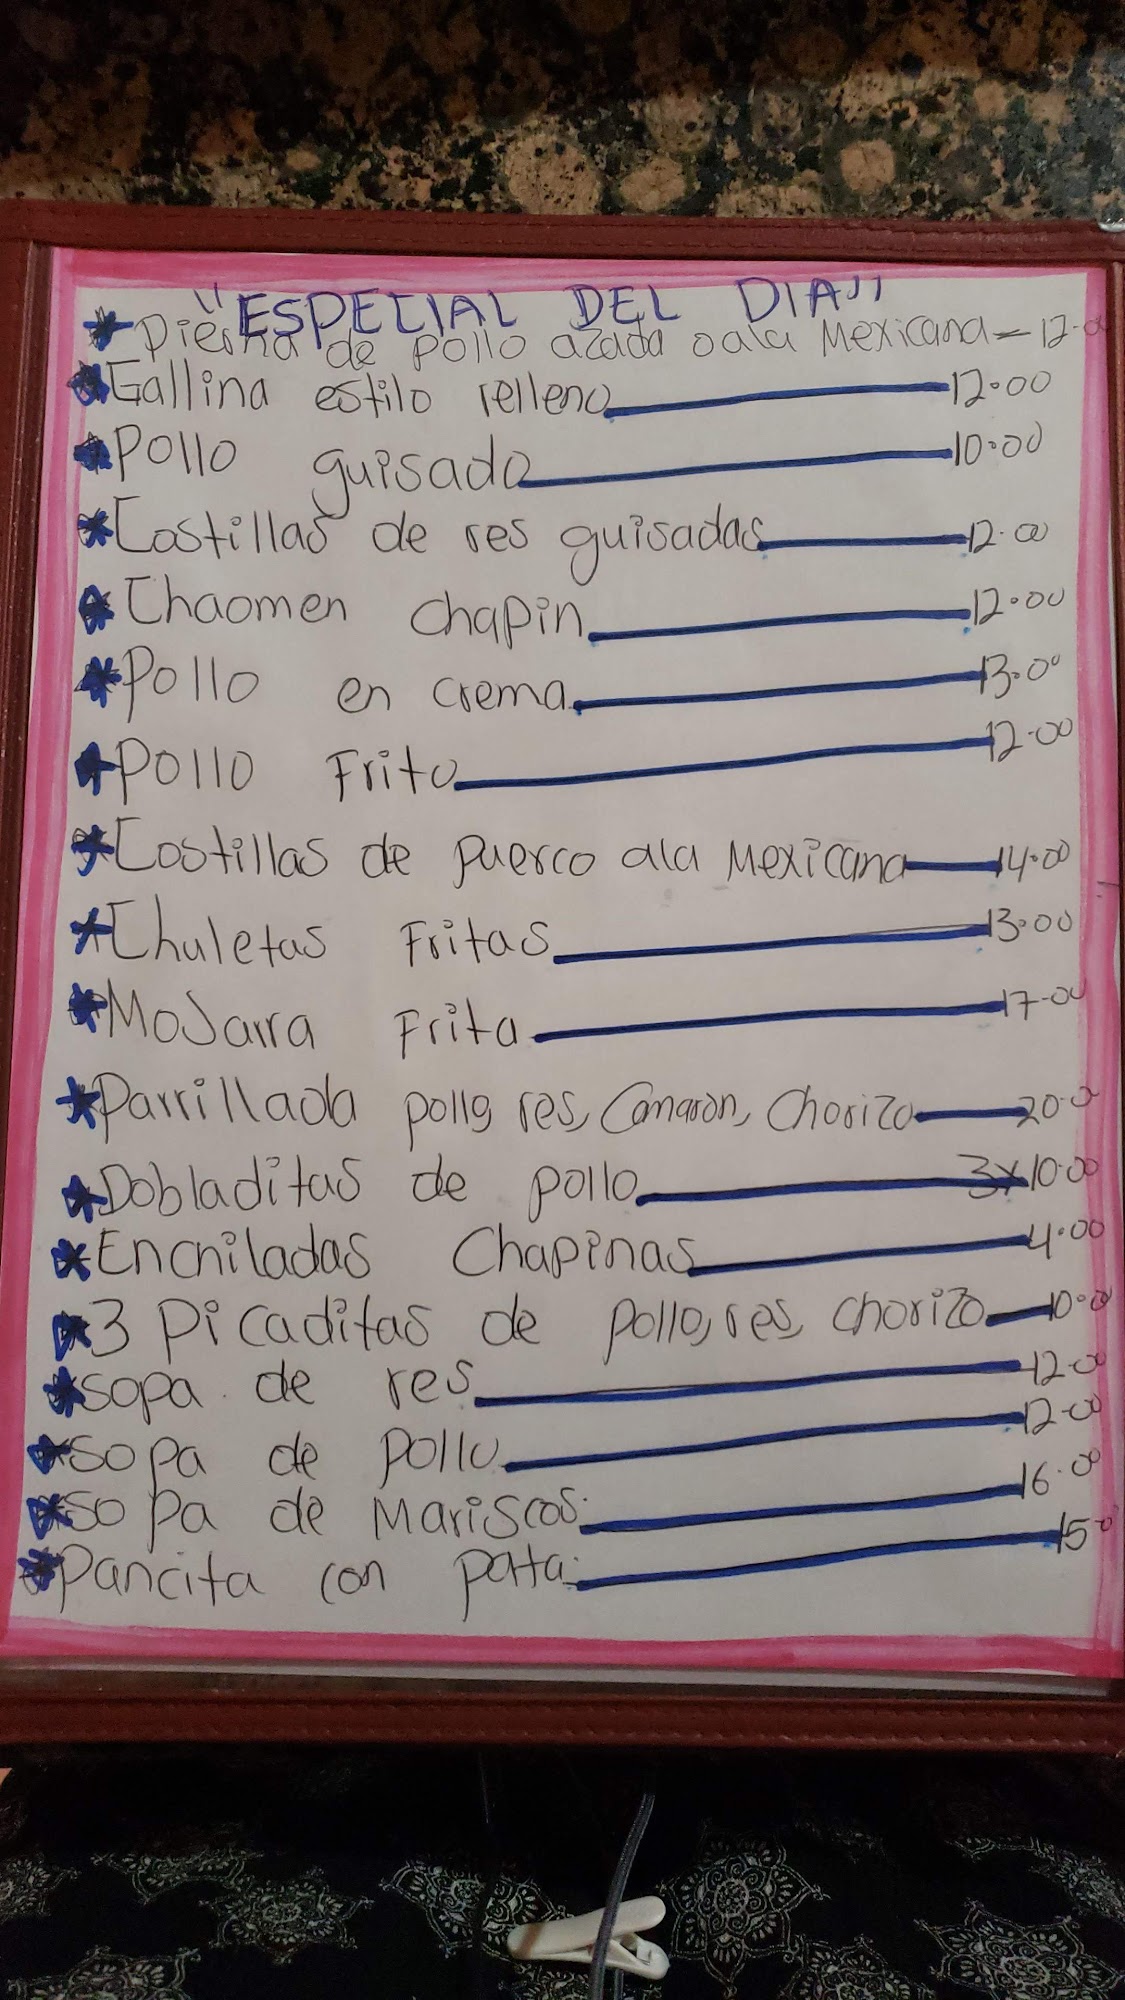 "ESPECIAL DEL DIA"
* Pierna de pollo azada o ala Mexicana - 12.00
* Gallina estilo relleno 12.00
* Pollo guisado 10.00
* Costillas de res guisadas 12.00
* Chaomen chapin 12.00
* Pollo en crema 13.00
* Pollo Frito 12.00
* Costillas de puerco ala Mexicana 14.00
* Chuletas Fritas 13.00
* MoJarra Frita 17.00
* Parrillada pollo, res, Camaron, Chorizo 20.00
* Dobladitas de pollo 3x10.00
* Enchiladas Chapinas 4.00
* 3 Picaditas de pollo, res, chorizo 10.00
* sopa de res 12.00
* sopa de pollo 12.00
* sopa de Mariscos 16.00
* Pancita con patta 15.0